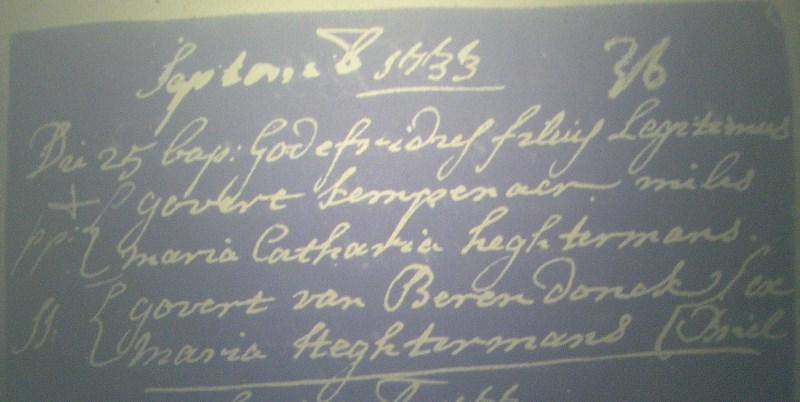 Septemb 1733 36
Die 25 bap: Godefridus filius Legitemus
govert kempenaer miles
pp: maria Catharia heghtermans.
ss: govert van Berendonck ex
maria Heghtermans Driel